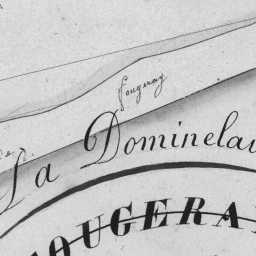 Fougeray
La Dominelai
FOUGERA